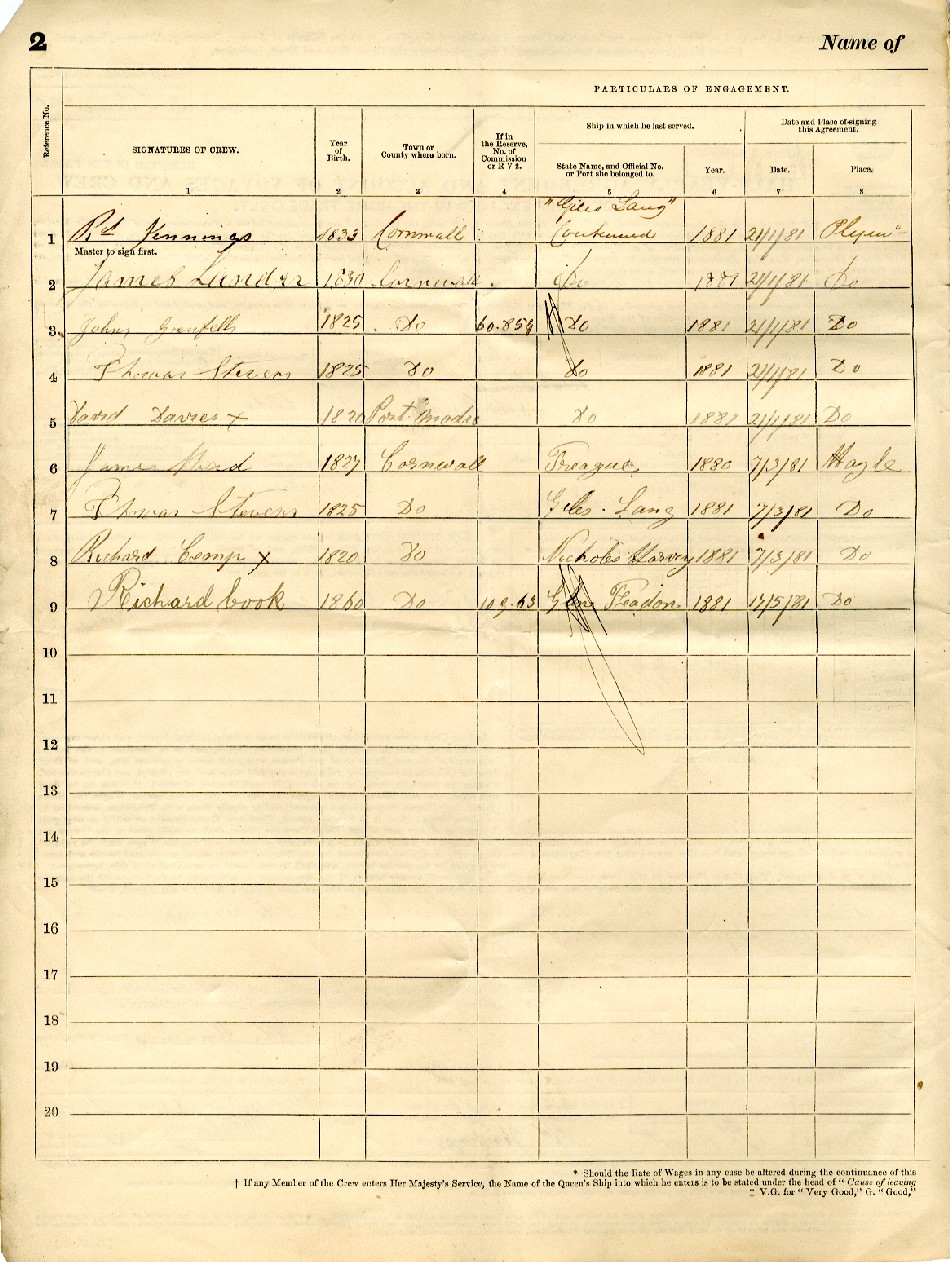 2 Name of
PARTICULARS OF ENGAGEMENT.
Reference No.
SIGNATURES OF CREW.
Year of Birth.
Town or County where born.
If in the Reserve, No. of Commission or R V 2.
Ship in which he last served.
State Name, and Official No. or Port she belonged to.
Year.
Date and Place of signing this Agreement.
Date.
Place.
1 2 3 4 5 6 7 8
"Giles Lang"
1 Rd Jennings 1833 Cornwall Continued 1881 21/1/81
Master to sign first.
2 James 1830 Cornwall Do 1881 21/1/81 Do
3 John Grenfell 1825 Do 60.859 Do 1881 21/1/81 Do
4 Thomas Stevens 1825 Do Do 1881 21/1/81 Do
5 David Davies X 1820 Port Madoc Do 1881 21/1/81 Do
6 James 1827 Cornwall 1880 7/3/81 Hayle
7 Thomas Stevens 1825 Do Giles Lang 1881 7/3/81 Do
8 Richard Cemp X 1820 Do Nicholas Harvey 1881 7/3/81 Do
9 Richard Cook 1860 Do 1881 17/5/81 Do
10
11
12
13
14
15
16
17
18
19
20
* Should the Rate of Wages in any case be altered during the continuance of this
† If any Member of the Crew enters Her Majesty's Service, the Name of the Queen's Ship into which he enters is to be stated under the head of "Cause of leaving
‡ V.G. for "Very Good," G. "Good,"